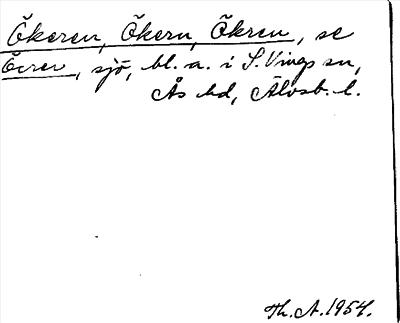 Ökeren, Ökern, Ökren, se
Öxren, sjö, bl. a. i S. Vings sn,
Ås hd, Älvsb. l.
Th. A. 1954.